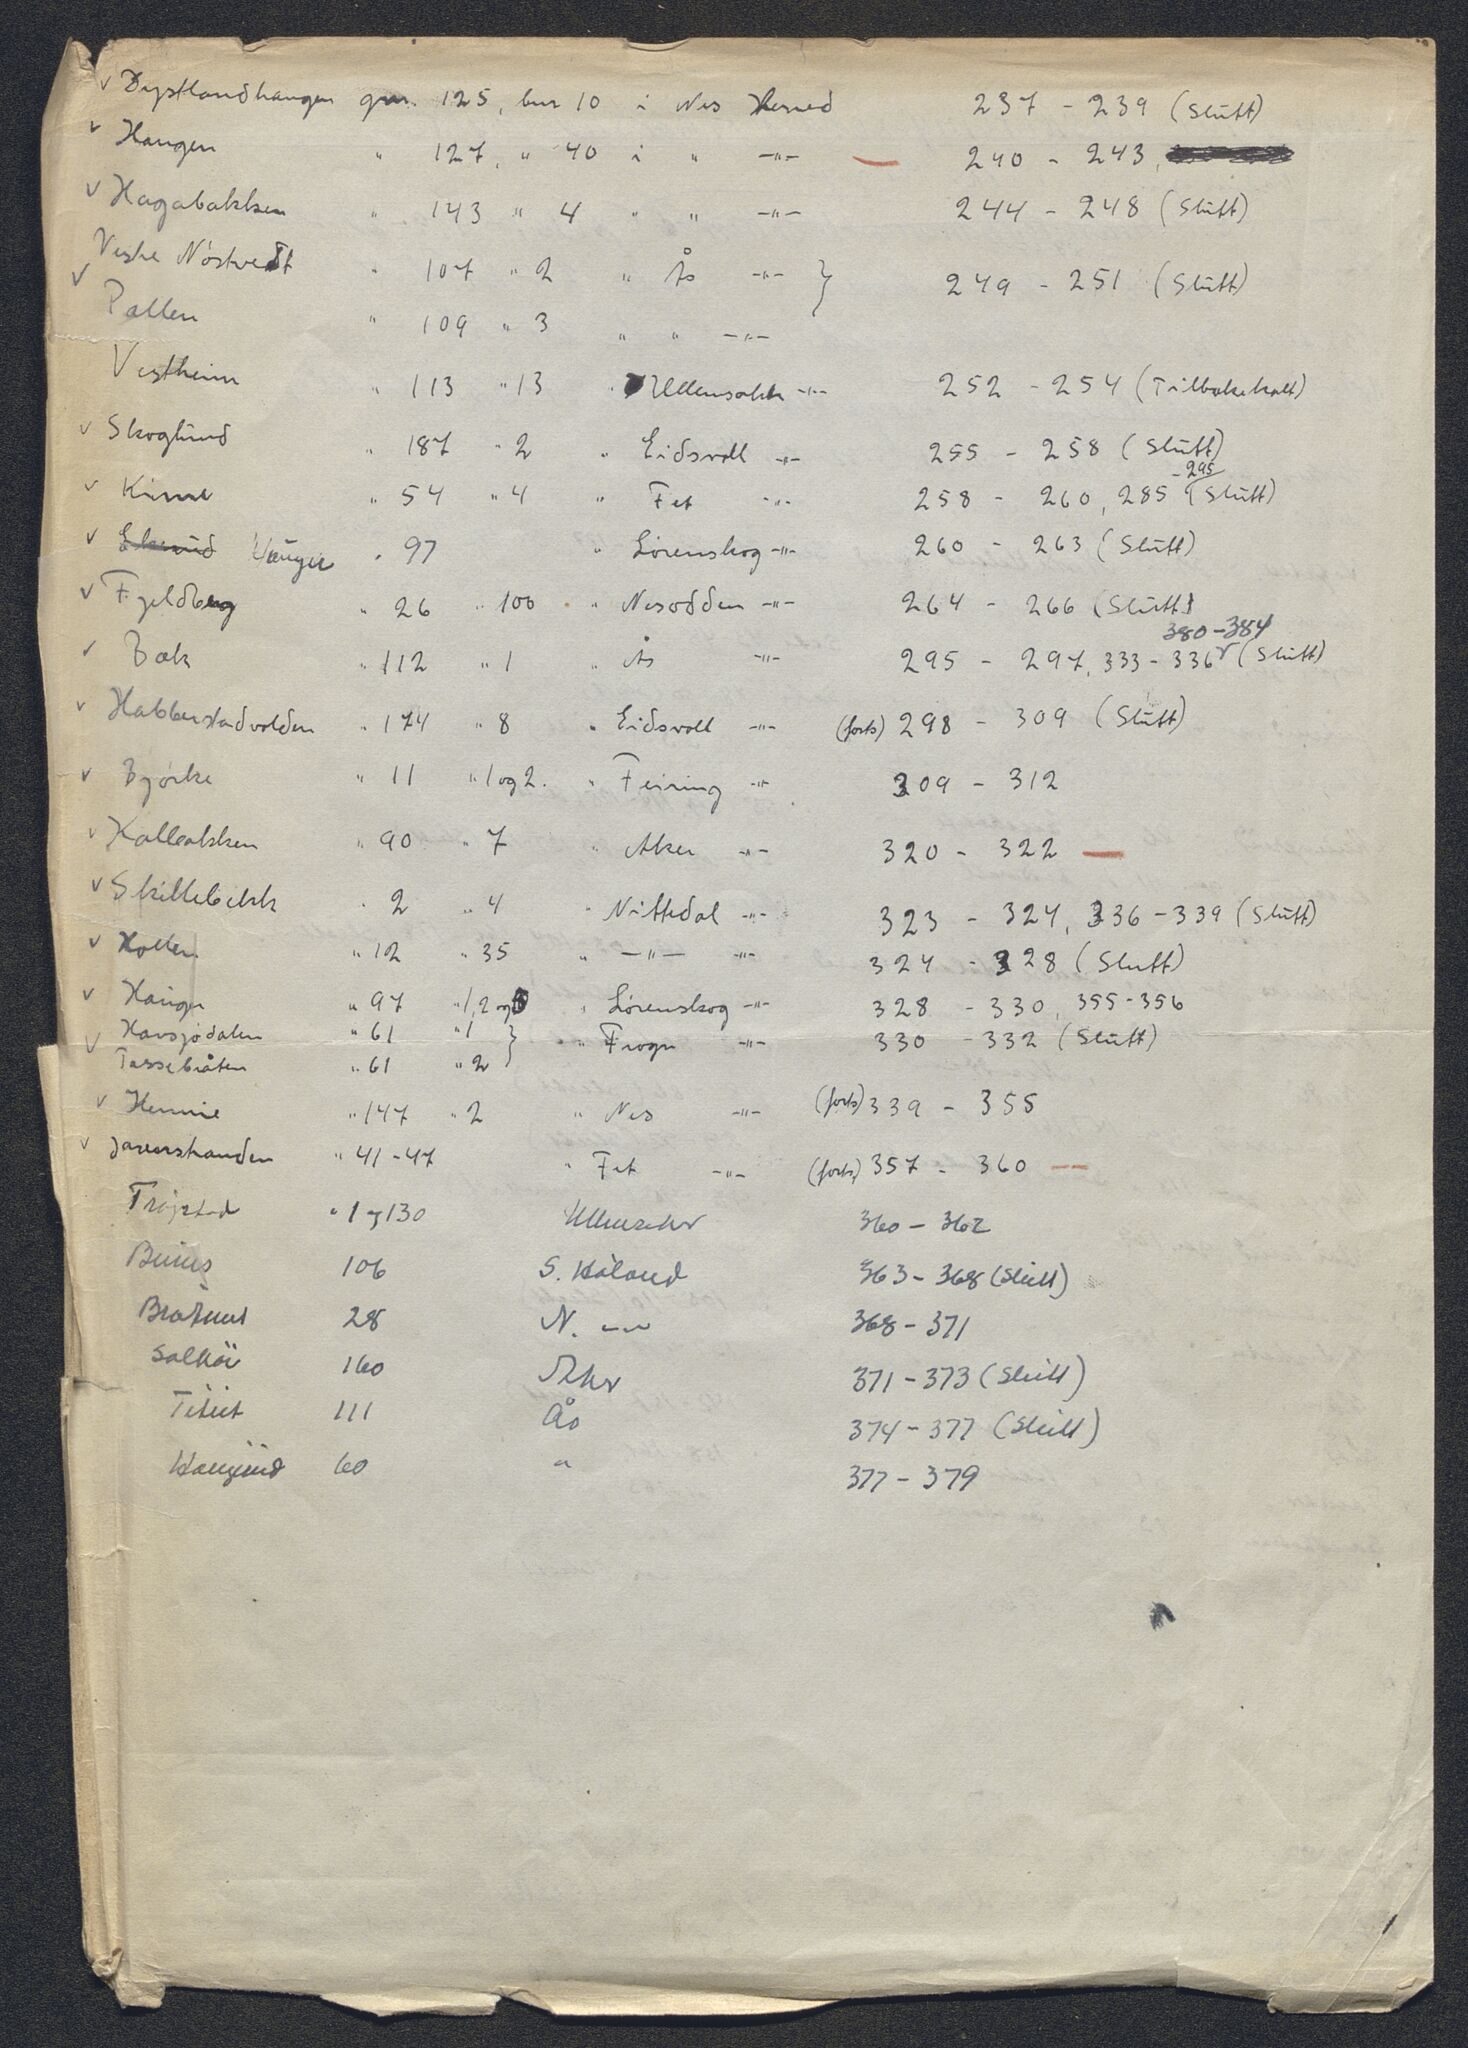 ✓ Dystlandhaugen gnr. 125, bnr 10 i Nes Herred 237 - 239 (Slutt)
✓ Haugen " 127, " 40 i " -"- — 240 - 243,
✓ Hagabakken " 143 " 4 " " -"- 244 - 248 (Slutt)
✓ Vestre Nöstvedt " 107 " 2 " Ås -"- } 249 - 251 (Slutt)
Pallen " 109 " 3 " " -"-
Vestheim " 113 " 13 " Ullensaker -"- 252 - 254 (Tilbakekalt)
✓ Skoglund " 187 " 2 " Eidsvoll -"- 255 - 258 (Slutt)
✓ " 54 " 4 " Fet -"- 258 - 260, 285 - 295 (Slutt)
✓ Hauger " 97 " Lörenskog -"- 260 - 263 (Slutt)
✓ Fjeldberg " 26 " 100 " Nesodden -"- 264 - 266 (Slutt)
✓ Bæk " 112 " 1 " Ås -"- 295 - 297, 333 - 336 380 - 384 (Slutt)
✓ Habberstadvolden " 174 " 8 " Eidsvoll -"- (forts) 298 - 309 (Slutt)
✓ Björke " 11 " 1 og 2. " Feiring -"- 309 - 312
✓ Kallbakken " 90 " 7 " Aker -"- 320 - 322 —
✓ Skillebekk " 2 " 4 " Nittedal -"- 323 - 324, 336 - 339 (Slutt)
✓ Hollen " 12 " 35 " -"- -"- 324 - 328 (Slutt)
✓ Hauger " 97 " 1, 2 og 5 " Lörenskog -"- 328 - 330, 355 - 356
✓ Havsjödalen " 61 " 1 } " Frogn -"- 330 - 332 (Slutt)
Tassebråten " 61 " 2
✓ " 147 " 2 " Nes -"- (forts) 339 - 355
✓ Jaren " 41 - 47 " Fet -"- (forts) 357 - 360 —
" 1 og 130 Ullensaker 360 - 362
106 S. Höland 363 - 368 (Slutt)
28 N. -"- 368 - 371
160 Aker 371 - 373 (Slutt)
111 Ås 374 - 377 (Slutt)
Haugerud 60 " 377 - 379